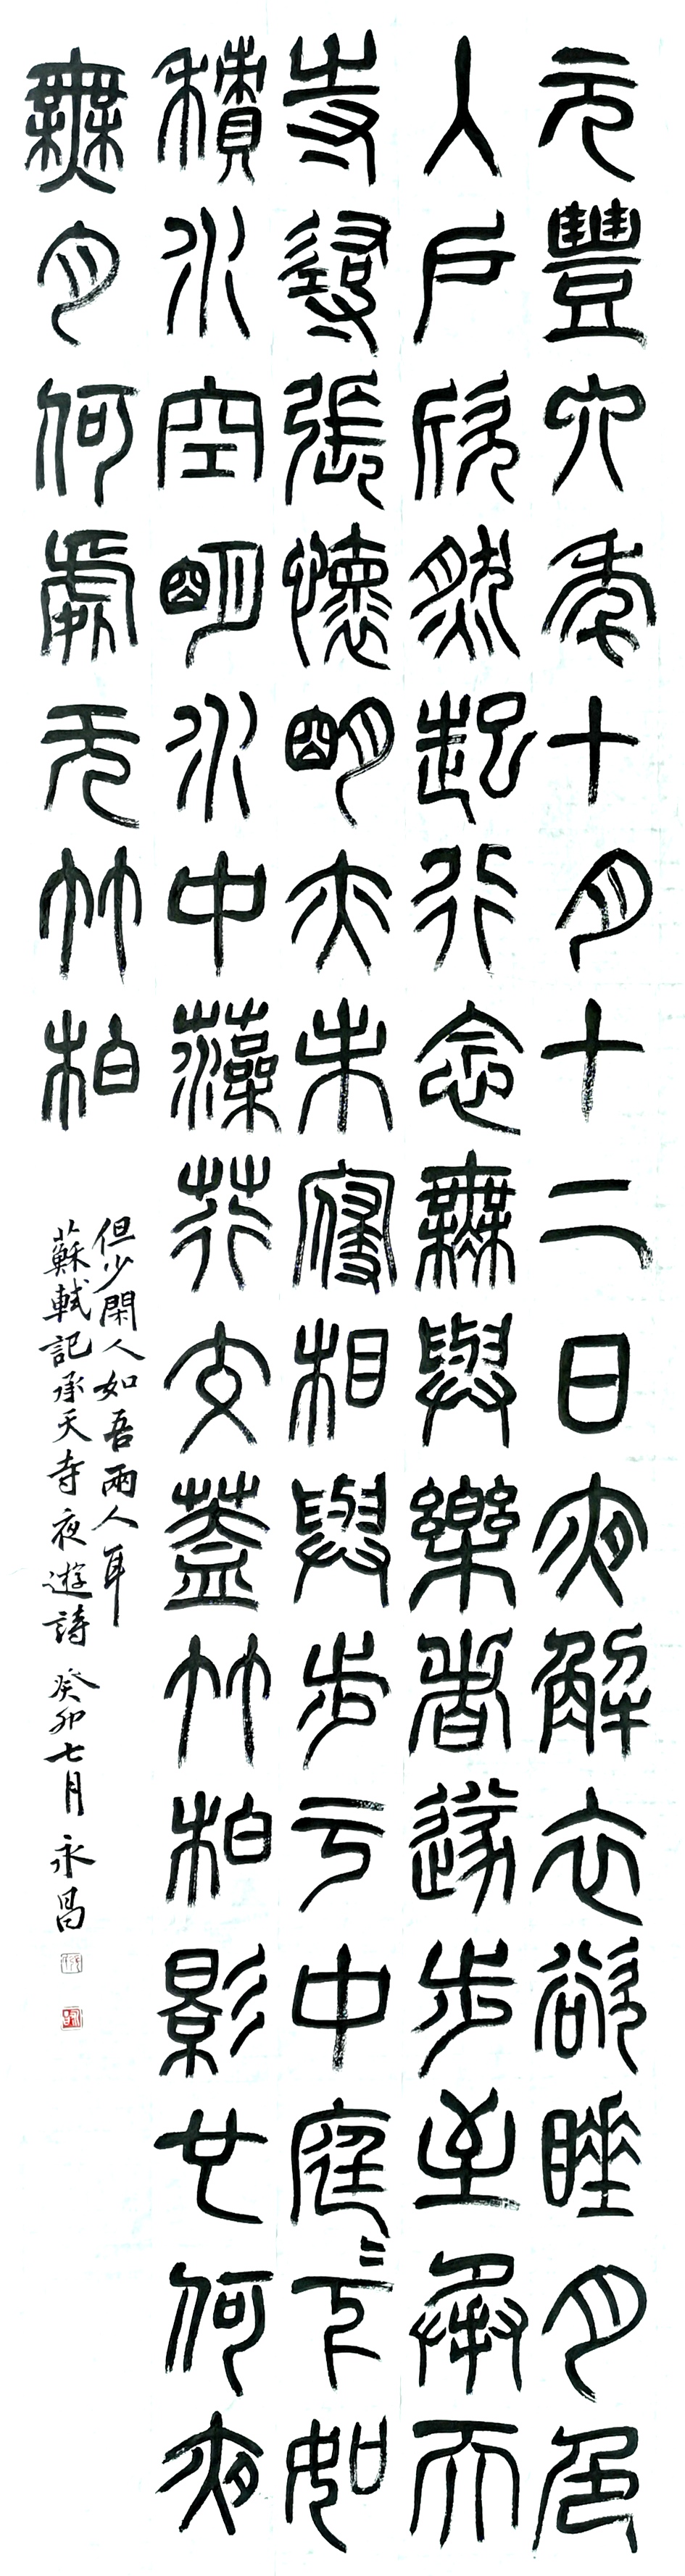 元豐六年十月十二日夜解衣欲睡月色
入戶欣然起行念無與樂者遂步至承天
寺尋張懷明亦未寢相與步于中庭〻下如
積水空明水中藻荇交蓋竹柏影也何夜
無月何處无竹柏
但少閑人如吾兩人耳
蘇軾記承天寺夜遊詩 癸卯七月 永昌